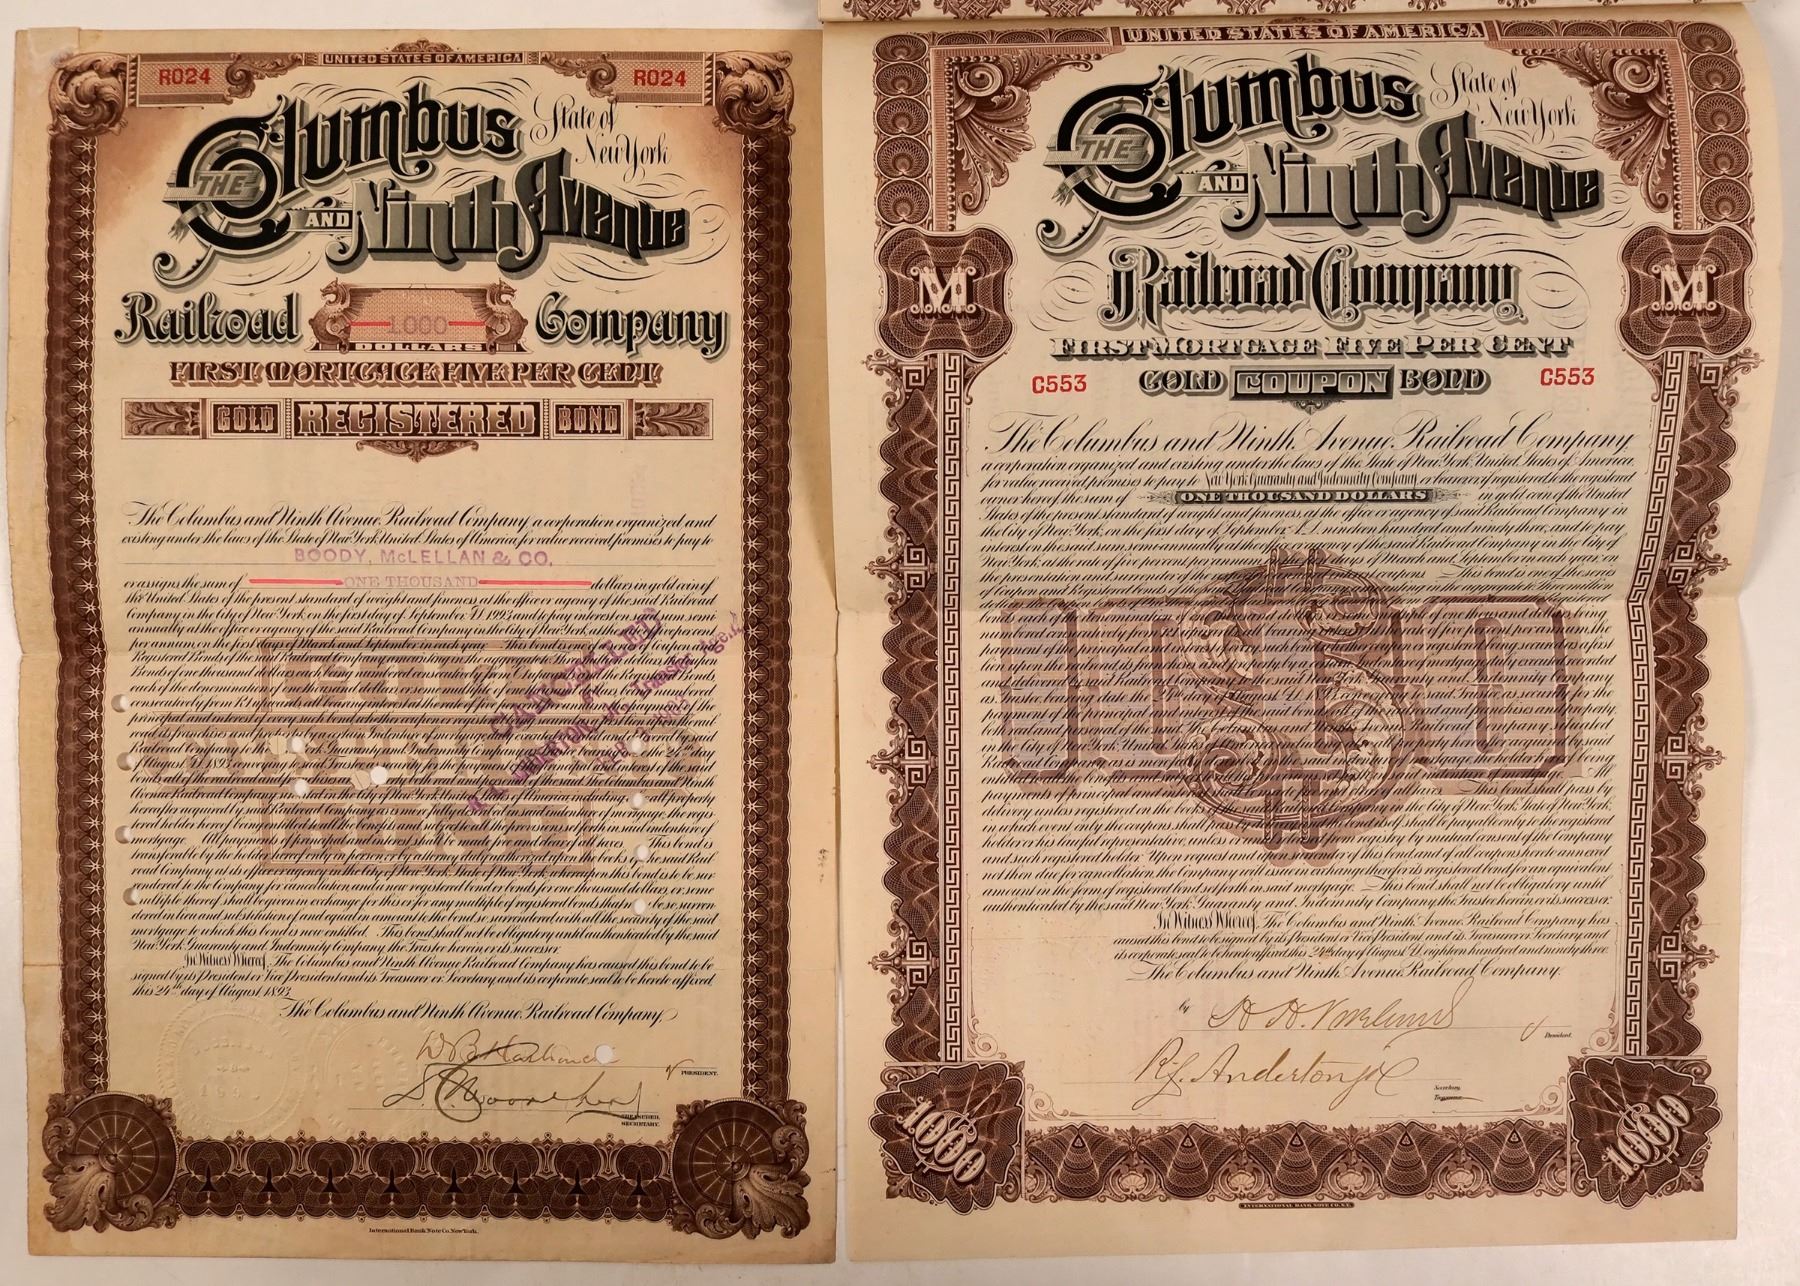 UNITED STATES OF AMERICA
R024 R024
THE Columbus State of
New York
AND Ninth Avenue
Railroad 1,000 Company
DOLLARS
FIRST MORTGAGE FIVE PER CENT
GOLD REGISTERED BOND
The Columbus and Ninth Avenue Railroad Company, a corporation organized and
existing under the laws of the State of New York, United States of America, for value received promises to pay to
BOODY, McLELLAN & CO.
or assigns the sum of ONE THOUSAND dollars in gold coin of
the United States of the present standard of weight and fineness, at the office or agency of the said Railroad
Company in the City of New York on the first day of September A.D. 1993, and to pay interest on said sum semi-
annually at the office or agency of the said Railroad Company in the City of New York, at the rate of five per cent
per annum, on the first days of March and September in each year. This bond is one of the series of Coupon and
Registered Bonds of the said Railroad Company amounting in the aggregate to Three Million dollars,
each of the denomination of one thousand dollars or some multiple of one thousand dollars, being numbered
consecutively from R1 upwards, all bearing interest at the rate of five per centum per annum, the payment of the
principal and interest of every such bond whether coupon or registered
Railroad Company to the New York Guaranty and Indemnity Company, as Trustee, bearing date the 24th day
of August A.D. 1893, conveying to said Trustee as security for the payment of the principal and interest of the said
bonds all of the railroad and franchises and property both real and personal of the said The Columbus and Ninth
Avenue Railroad Company situated in the City of New York, United States of America, including all property
hereafter acquired by said Railroad Company as is more fully described in said indenture of mortgage, the regis-
tered holder hereof being entitled to all the benefits and subject to all the provisions set forth in said indenture of
mortgage. All payments of principal and interest shall be made free and clear of all taxes. This bond is
transferable by the holder hereof only in person or by attorney duly authorized upon the books of the said Rail-
road Company at its office or agency in the City of New York, State of New York, whereupon this bond is to be sur-
rendered to the Company for cancellation, and a new registered bond or bonds for one thousand dollars, or some
multiple thereof shall be given in exchange for this or for any multiple of registered bonds that may be so, surren-
dered in lieu and substitution of and equal in amount to the bond so surrendered with all the security of the said
mortgage to which this bond is now entitled. This bond shall not be obligatory until authenticated by the said
New York Guaranty and Indemnity Company, the Trustee herein or its successor.
In Witness Whereof, The Columbus and Ninth Avenue Railroad Company has caused this bond to be
signed by its President or Vice President and its Treasurer or Secretary, and its corporate seal to be hereto affixed
this 24th day of August 1893.
The Columbus and Ninth Avenue Railroad Company,
PRESIDENT.
TREASURER.
SECRETARY.
International Bank Note Co. New York.
UNITED STATES OF AMERICA
THE Columbus State of
New York
AND Ninth Avenue
Railroad Company
M M
FIRST MORTGAGE FIVE PER CENT
C553 GOLD COUPON BOND C553
The Columbus and Ninth Avenue Railroad Company
a corporation organized and existing under the laws of the State of New York, United States of America,
for value received promises to pay to New York Guaranty and Indemnity Company, or bearer or if registered, to the registered
owner hereof, the sum of ONE THOUSAND DOLLARS in gold coin of the United
States of the present standard of weight and fineness, at the office or agency of said Railroad Company in
the City of New York, on the first day of September A.D. nineteen hundred and ninety three, and to pay
interest on the said sum, semi-annually at the office or agency of the said Railroad Company in the City of
New York, at the rate of five per cent, per annum, on the first days of March and September in each year, on
the presentation and surrender of the respective coupons. This bond is one of the series
of Coupon and Registered bonds of the said Railroad Company amounting in the aggregate to Three Million
bonds each of the denomination of one thousand dollars being
and delivered by said Railroad Company to the New York Guaranty and Indemnity Company
as Trustee bearing date the 24th day of August A.D. 1893, conveying to said Trustee as security for the
payment of the principal and interest of the said bonds all of the railroad and franchises and property,
both real and personal of the said, The Columbus and Ninth Avenue Railroad Company situated
in the City of New York, United States of America, including all property hereafter acquired by said
Railroad Company as is more fully described in the said indenture of mortgage, the holder hereof being
entitled to all the benefits and subject to all the provisions set forth in said indenture of mortgage. All
payments of principal and interest shall be made free and clear of all taxes. This bond shall pass by
delivery unless registered on the books of the said Railroad Company in the City of New York, State of New York,
in which event only the coupons shall pass by delivery and the bond itself shall be payable only to the registered
holder or his lawful representative, unless discharged from registry by mutual consent of the Company
and such registered holder. Upon request and upon surrender of this bond and of all coupons hereto annexed
not then due for cancellation, the Company will issue in exchange therefor its registered bond for an equivalent
amount in the form of registered bond set forth in said mortgage. This bond shall not be obligatory until
authenticated by the said New York Guaranty and Indemnity Company, the Trustee herein or its successor.
In Witness Whereof, The Columbus and Ninth Avenue Railroad Company has
caused this bond to be signed by its President or Vice President and its Treasurer or Secretary and
its corporate seal to be hereto affixed, this 24th day of August A.D. eighteen hundred and ninety three.
The Columbus and Ninth Avenue Railroad Company.
by H. H. Vreeland
President.
Secretary.
Treasurer.
1000 1000
INTERNATIONAL BANK NOTE CO. N.Y.